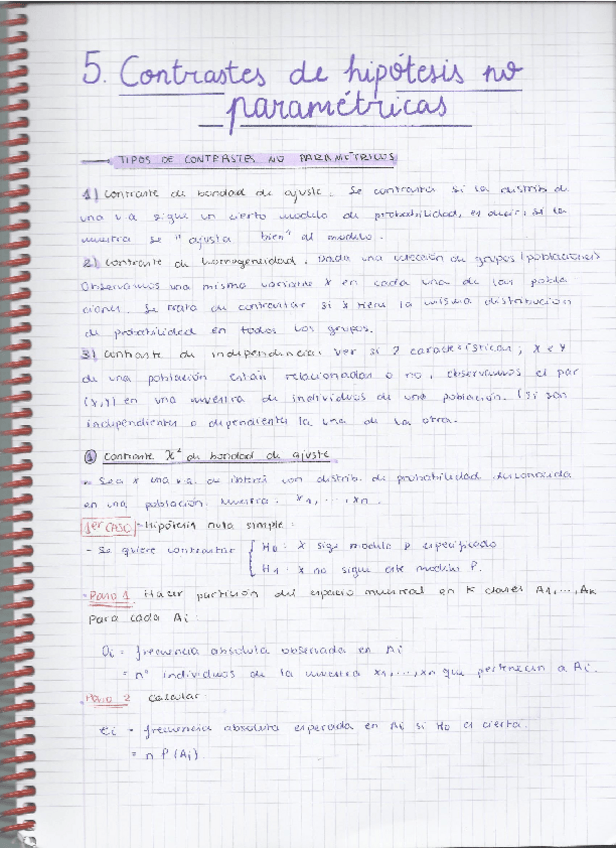 5. Contrastes de hipótesis no
paramétricas
TIPOS DE CONTRASTES NO PARAMÉTRICOS
1) Contraste de bondad de ajuste. Se contrasta si la distrib de
una v.a sigue un cierto modelo de probabilidad, es decir, si la
muestra se "ajusta bien" al modelo.
2) Contraste de homogeneidad. Dada una colección de grupos (poblaciones)
Observamos una misma variable X en cada una de las pobla
ciones. Se trata de contrastar si X tiene la misma distribución
de probabilidad en todos los grupos.
3) Contraste de independencia: Ver si 2 características, X e Y
de una población están relacionadas o no, observamos el par
(X,Y) en una muestra de individuos de una población. (Si son
independientes o dependientes la una de la otra.
① Contraste X² de bondad de ajuste
- Sea X una v.a. de interés con distrib. de probabilidad desconocida
en una población. Muestra: X1, ..., Xn.
1er CASO - Hipótesis nula simple:
- Se quiere contrastar { H0: X sigue modelo P especificado
H1: X no sigue este modelo P.
- Paso 1 Hacer partición del espacio muestral en K clases A1, ..., AK
Para cada Ai:
Oi = frecuencia absoluta observada en Ai
= nº individuos de la muestra X1, ..., Xn que pertenecen a Ai.
- Paso 2 Calcular
ei = frecuencia absoluta esperada en Ai si H0 es cierta.
= n P(Ai)